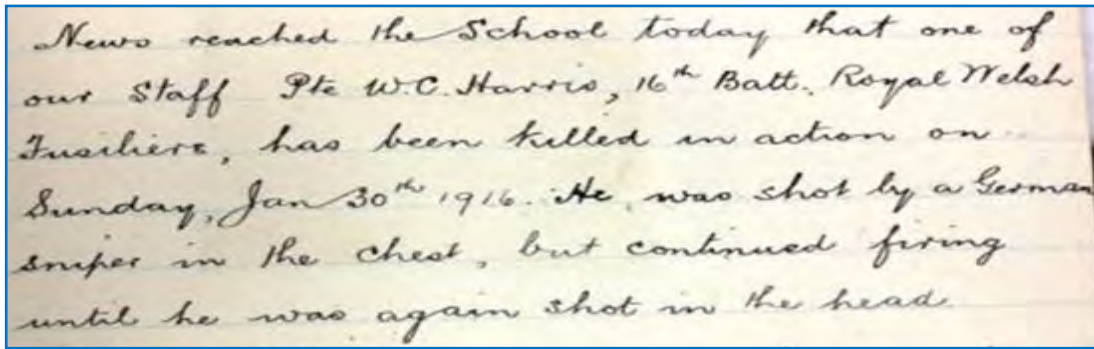 News reached the School today that one of
our Staff Pte W.C. Harris, 16th Batt. Royal Welsh
Fusiliers, has been killed in action on
Sunday, Jan 30th 1916. He was shot by a German
sniper in the chest, but continued firing
until he was again shot in the head